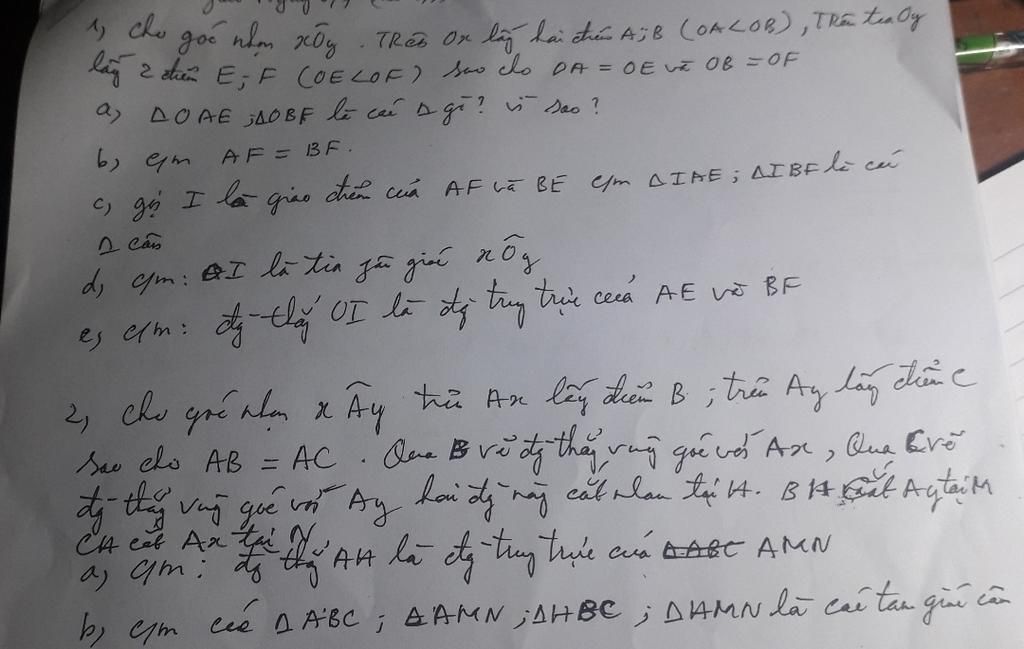 1, cho góc nhọn xÔy. Trên Ox lấy hai điểm A; B (OA<OB), Trên tia Oy
lấy 2 điểm E; F (OE<OF) sao cho OA = OE và OB = OF
a, ΔOAE ; ΔOBF là các Δ gì? vì sao?
b, c/m AF = BF.
c, gọi I là giao điểm của AF và BE c/m ΔIAE ; ΔIBF là các
Δ cân
d, c/m: OI là tia fân giác xÔy
e, c/m: đg thẳg OI là đg trug trực của AE và BF
2, cho góc nhọn xÂy trên Ax lấy điểm B ; trên Ay lấy điểm C
sao cho AB = AC. Qua B vẽ đg thẳg vuôg góc với Ax, Qua C vẽ
đg thẳg vuôg góc với Ay hai đg này cắt nhau tại H. BH cắt Ay tại M
CH cắt Ax tại N
a, c/m: đg thẳg AH là đg trug trực của ΔABC AMN
b, c/m các ΔABC ; ΔAMN ; ΔHBC ; ΔHMN là các tam giác cân